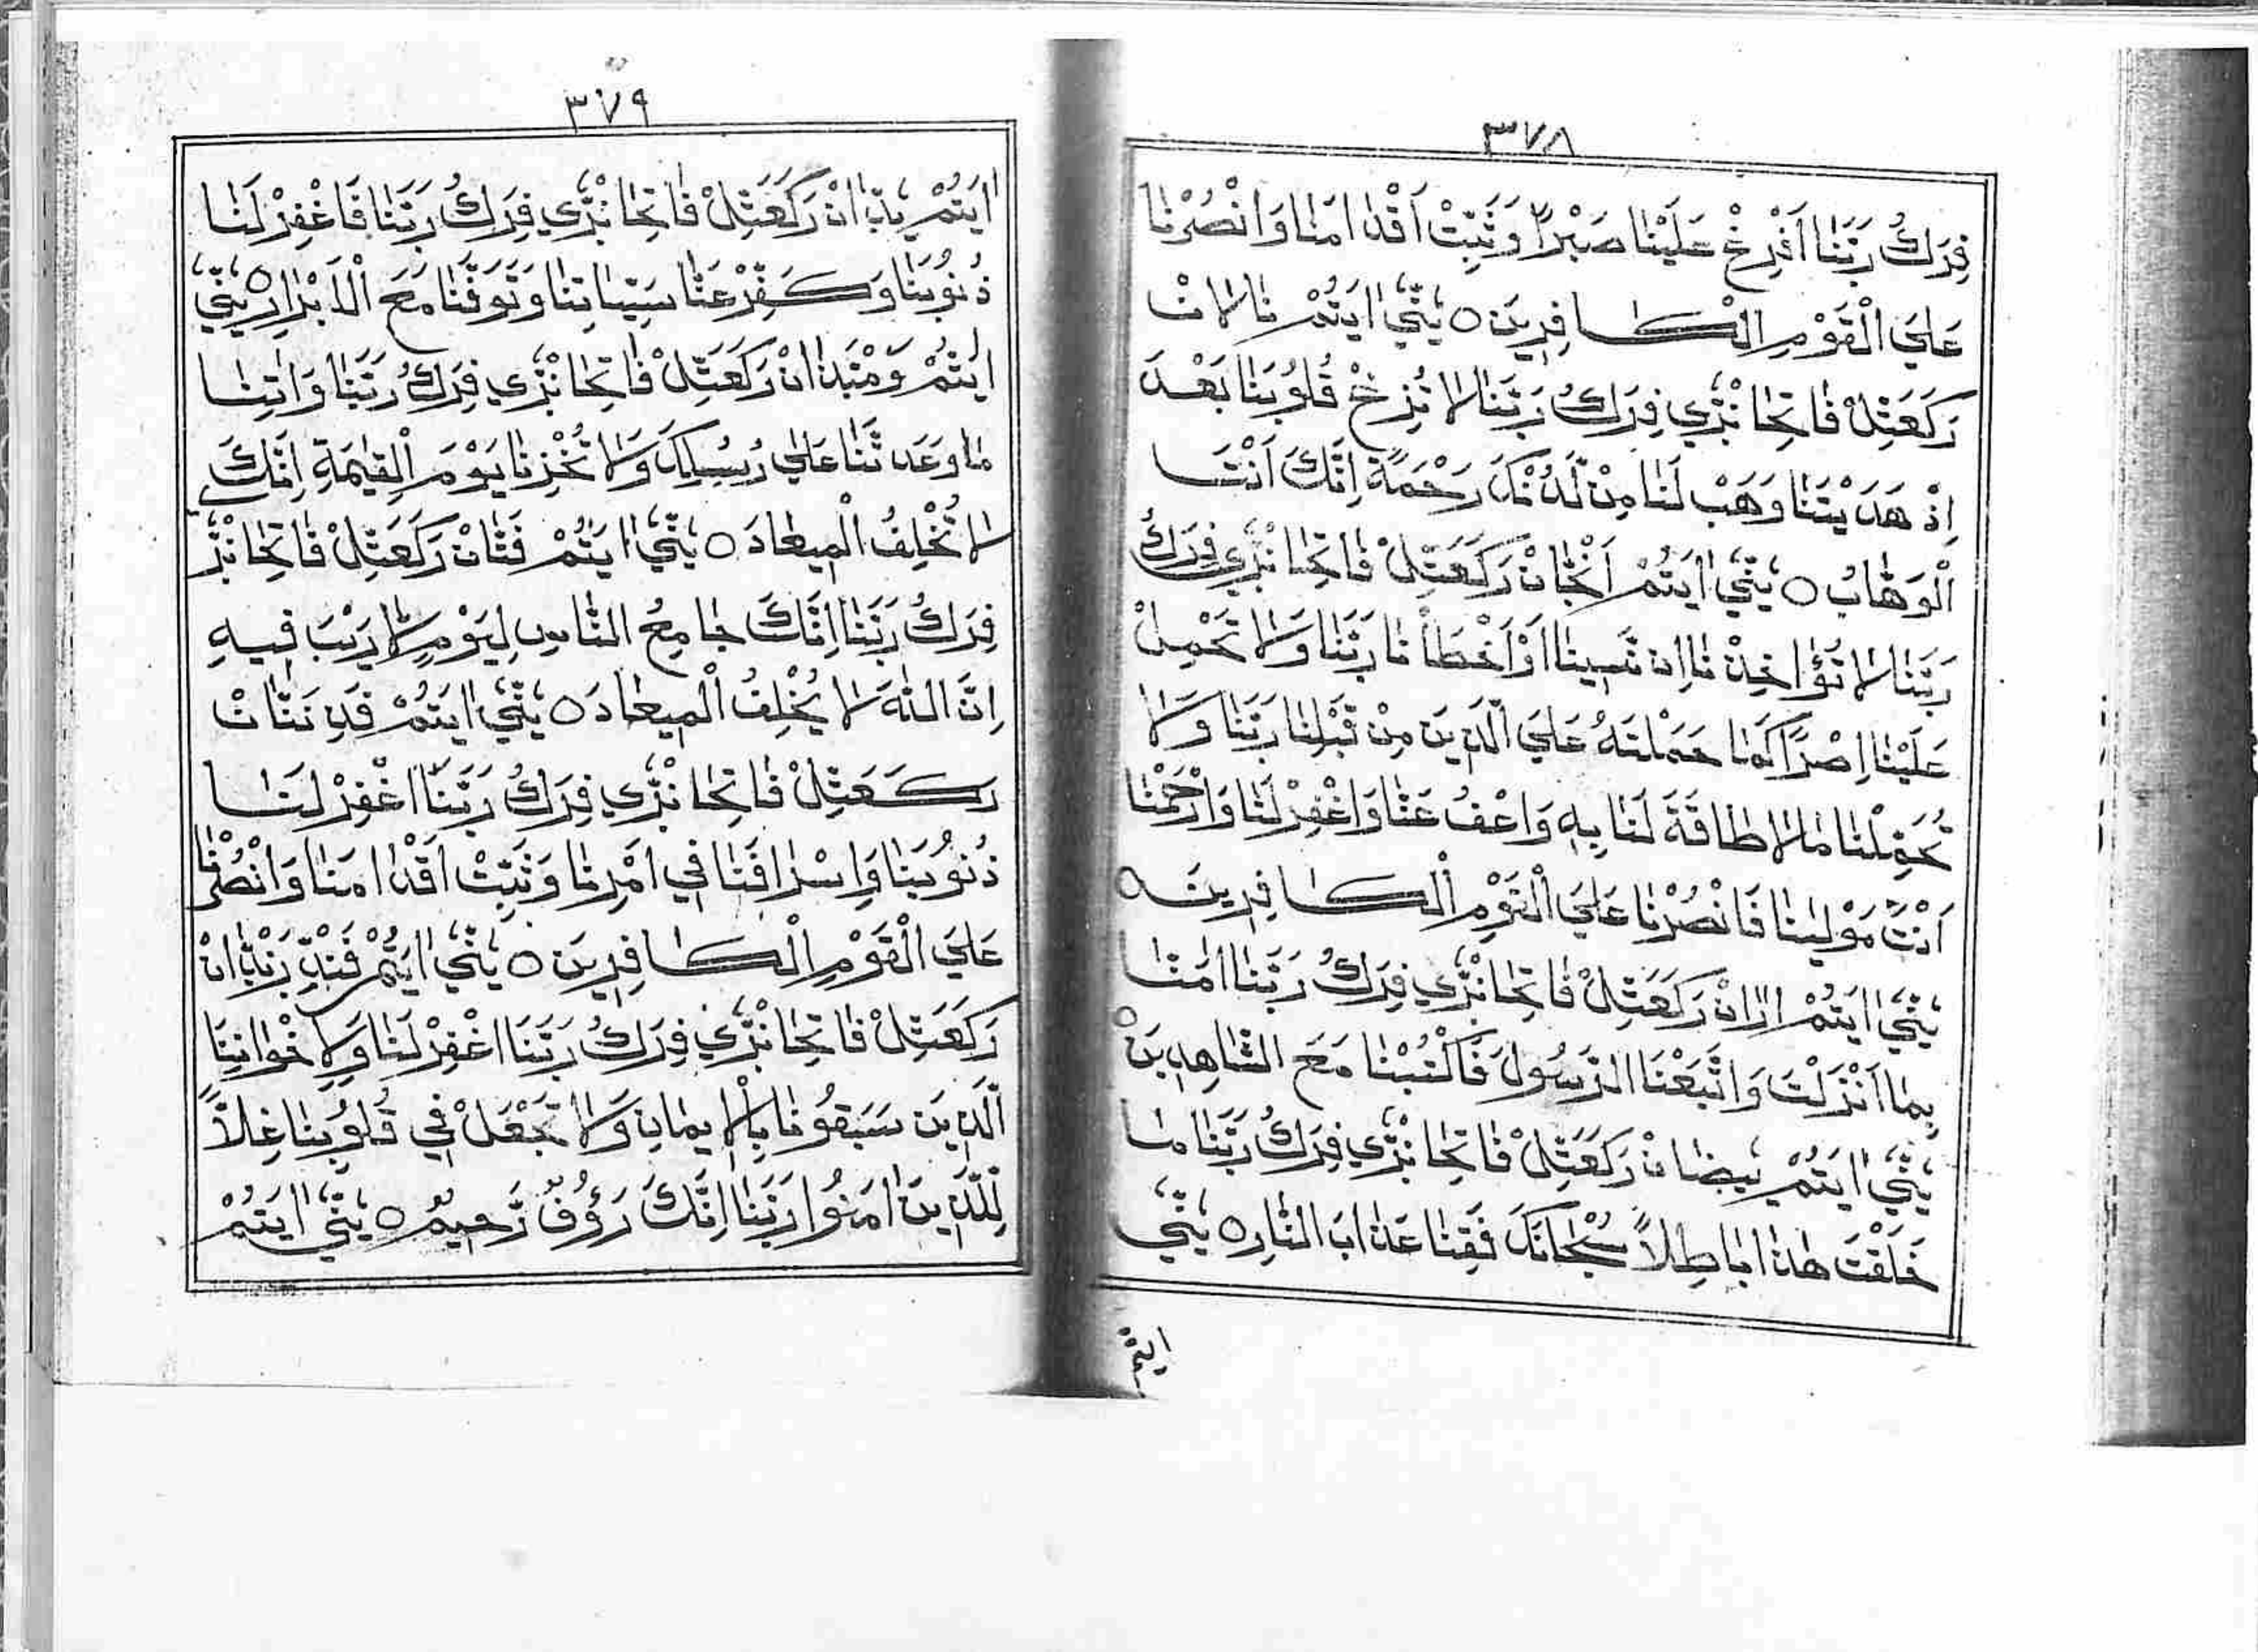 ٣٧٨
فِرَكُ رَبَّنَا اَفْرِغْ عَلَيْنَا صَبْرًا وَثَبِّتْ اَقْدَامَنَا وَانْصُرْنَا
عَلَي الْقَوْمِ الْكَافِرِيْنَ ○ يٖنّٖيٰ اٰيَتُمْ نَالَانْ
رَكَعَتِلْ فَاتِحَا نْتّٖرٖي فِرَكُ رَبَّنَا لَا تُزِغْ قُلُوْبَنَا بَعْدَ
اِذْ هَدَيْتَنَا وَهَبْ لَنَا مِنْ لَّدُنْكَ رَحْمَةً اِنَّكَ اَنْتَ
الْوَهَّابُ ○ يٖنّٖيٰ اٰيَتُمْ اَنْجَانْ رَكَعَتِلْ فَاتِحَا نْتّٖرٖي فِرَكُ
رَبَّنَا لَا تُؤَاخِذْنَا اِنْ نَّسِيْنَا اَوْ اَخْطَأْنَا رَبَّنَا وَلَا تَحْمِلْ
عَلَيْنَا اِصْرًا كَمَا حَمَلْتَهُ عَلَي الَّذِيْنَ مِنْ قَبْلِنَا رَبَّنَا وَلَا
تُحَمِّلْنَا مَا لَا طَاقَةَ لَنَا بِهِ وَاعْفُ عَنَّا وَاغْفِرْ لَنَا وَارْحَمْنَا
اَنْتَ مَوْلٰينَا فَانْصُرْنَا عَلَي الْقَوْمِ الْكَافِرِيْنَ ○
يٖنّٖيٰ اٰيَتُمْ اٰرَانْ رَكَعَتِلْ فَاتِحَا نْتّٖرٖي فِرَكُ رَبَّنَا اٰمَنَّا
بِمَا اَنْزَلْتَ وَاتَّبَعْنَا الرَّسُوْلَ فَاكْتُبْنَا مَعَ الشَّاهِدِيْنَ ○
يٖنّٖيٰ اٰيَتُمْ يٖيضَانْ رَكَعَتِلْ فَاتِحَا نْتّٖرٖي فِرَكُ رَبَّنَا مَا
خَلَقْتَ هٰذَا بَاطِلًا سُبْحَانَكَ فَقِنَا عَذَابَ النَّارِ ○ يٖنّٖي
٣٧٩
اٰيَتُمْ رَكَعَتِلْ فَاتِحَا نْتّٖرٖي فِرَكُ رَبَّنَا فَاغْفِرْ لَنَا
ذُنُوْبَنَا وَكَفِّرْ عَنَّا سَيِّئَاتِنَا وَتَوَفَّنَا مَعَ الْاَبْرَارِ ○ يٖنّٖي
اٰيَتُمْ رَكَعَتِلْ فَاتِحَا نْتّٖرٖي فِرَكُ رَبَّنَا وَاٰتِنَا
مَا وَعَدْتَّنَا عَلٰي رُسُلِكَ وَلَا تُخْزِنَا يَوْمَ الْقِيٰمَةِ اِنَّكَ
لَا تُخْلِفُ الْمِيْعَادَ ○ يٖنّٖيٰ اٰيَتُمْ فَتَّانْ رَكَعَتِلْ فَاتِحَا نْتّٖرٖ
فِرَكُ رَبَّنَا اِنَّكَ جَامِعُ النَّاسِ لِيَوْمٍ لَّا رَيْبَ فِيْهِ
اِنَّ اللهَ لَا يُخْلِفُ الْمِيْعَادَ ○ يٖنّٖيٰ اٰيَتُمْ فَدِنَنَّانْ
رَكَعَتِلْ فَاتِحَا نْتّٖرٖي فِرَكُ رَبَّنَا اغْفِرْ لَنَا
ذُنُوْبَنَا وَاِسْرَافَنَا فِي اَمْرِنَا وَثَبِّتْ اَقْدَامَنَا وَانْصُرْنَا
عَلَي الْقَوْمِ الْكَافِرِيْنَ ○ يٖنّٖيٰ اٰيَتُمْ
رَكَعَتِلْ فَاتِحَا نْتّٖرٖي فِرَكُ رَبَّنَا اغْفِرْ لَنَا وَلِاِخْوَانِنَا
الَّذِيْنَ سَبَقُوْنَا بِالْاِيْمَانِ وَلَا تَجْعَلْ فِي قُلُوْبِنَا غِلًّا
لِّلَّذِيْنَ اٰمَنُوْا رَبَّنَا اِنَّكَ رَؤُفٌ رَّحِيْمٌ ○ يٖنّٖيٰ اٰيَتُمْ